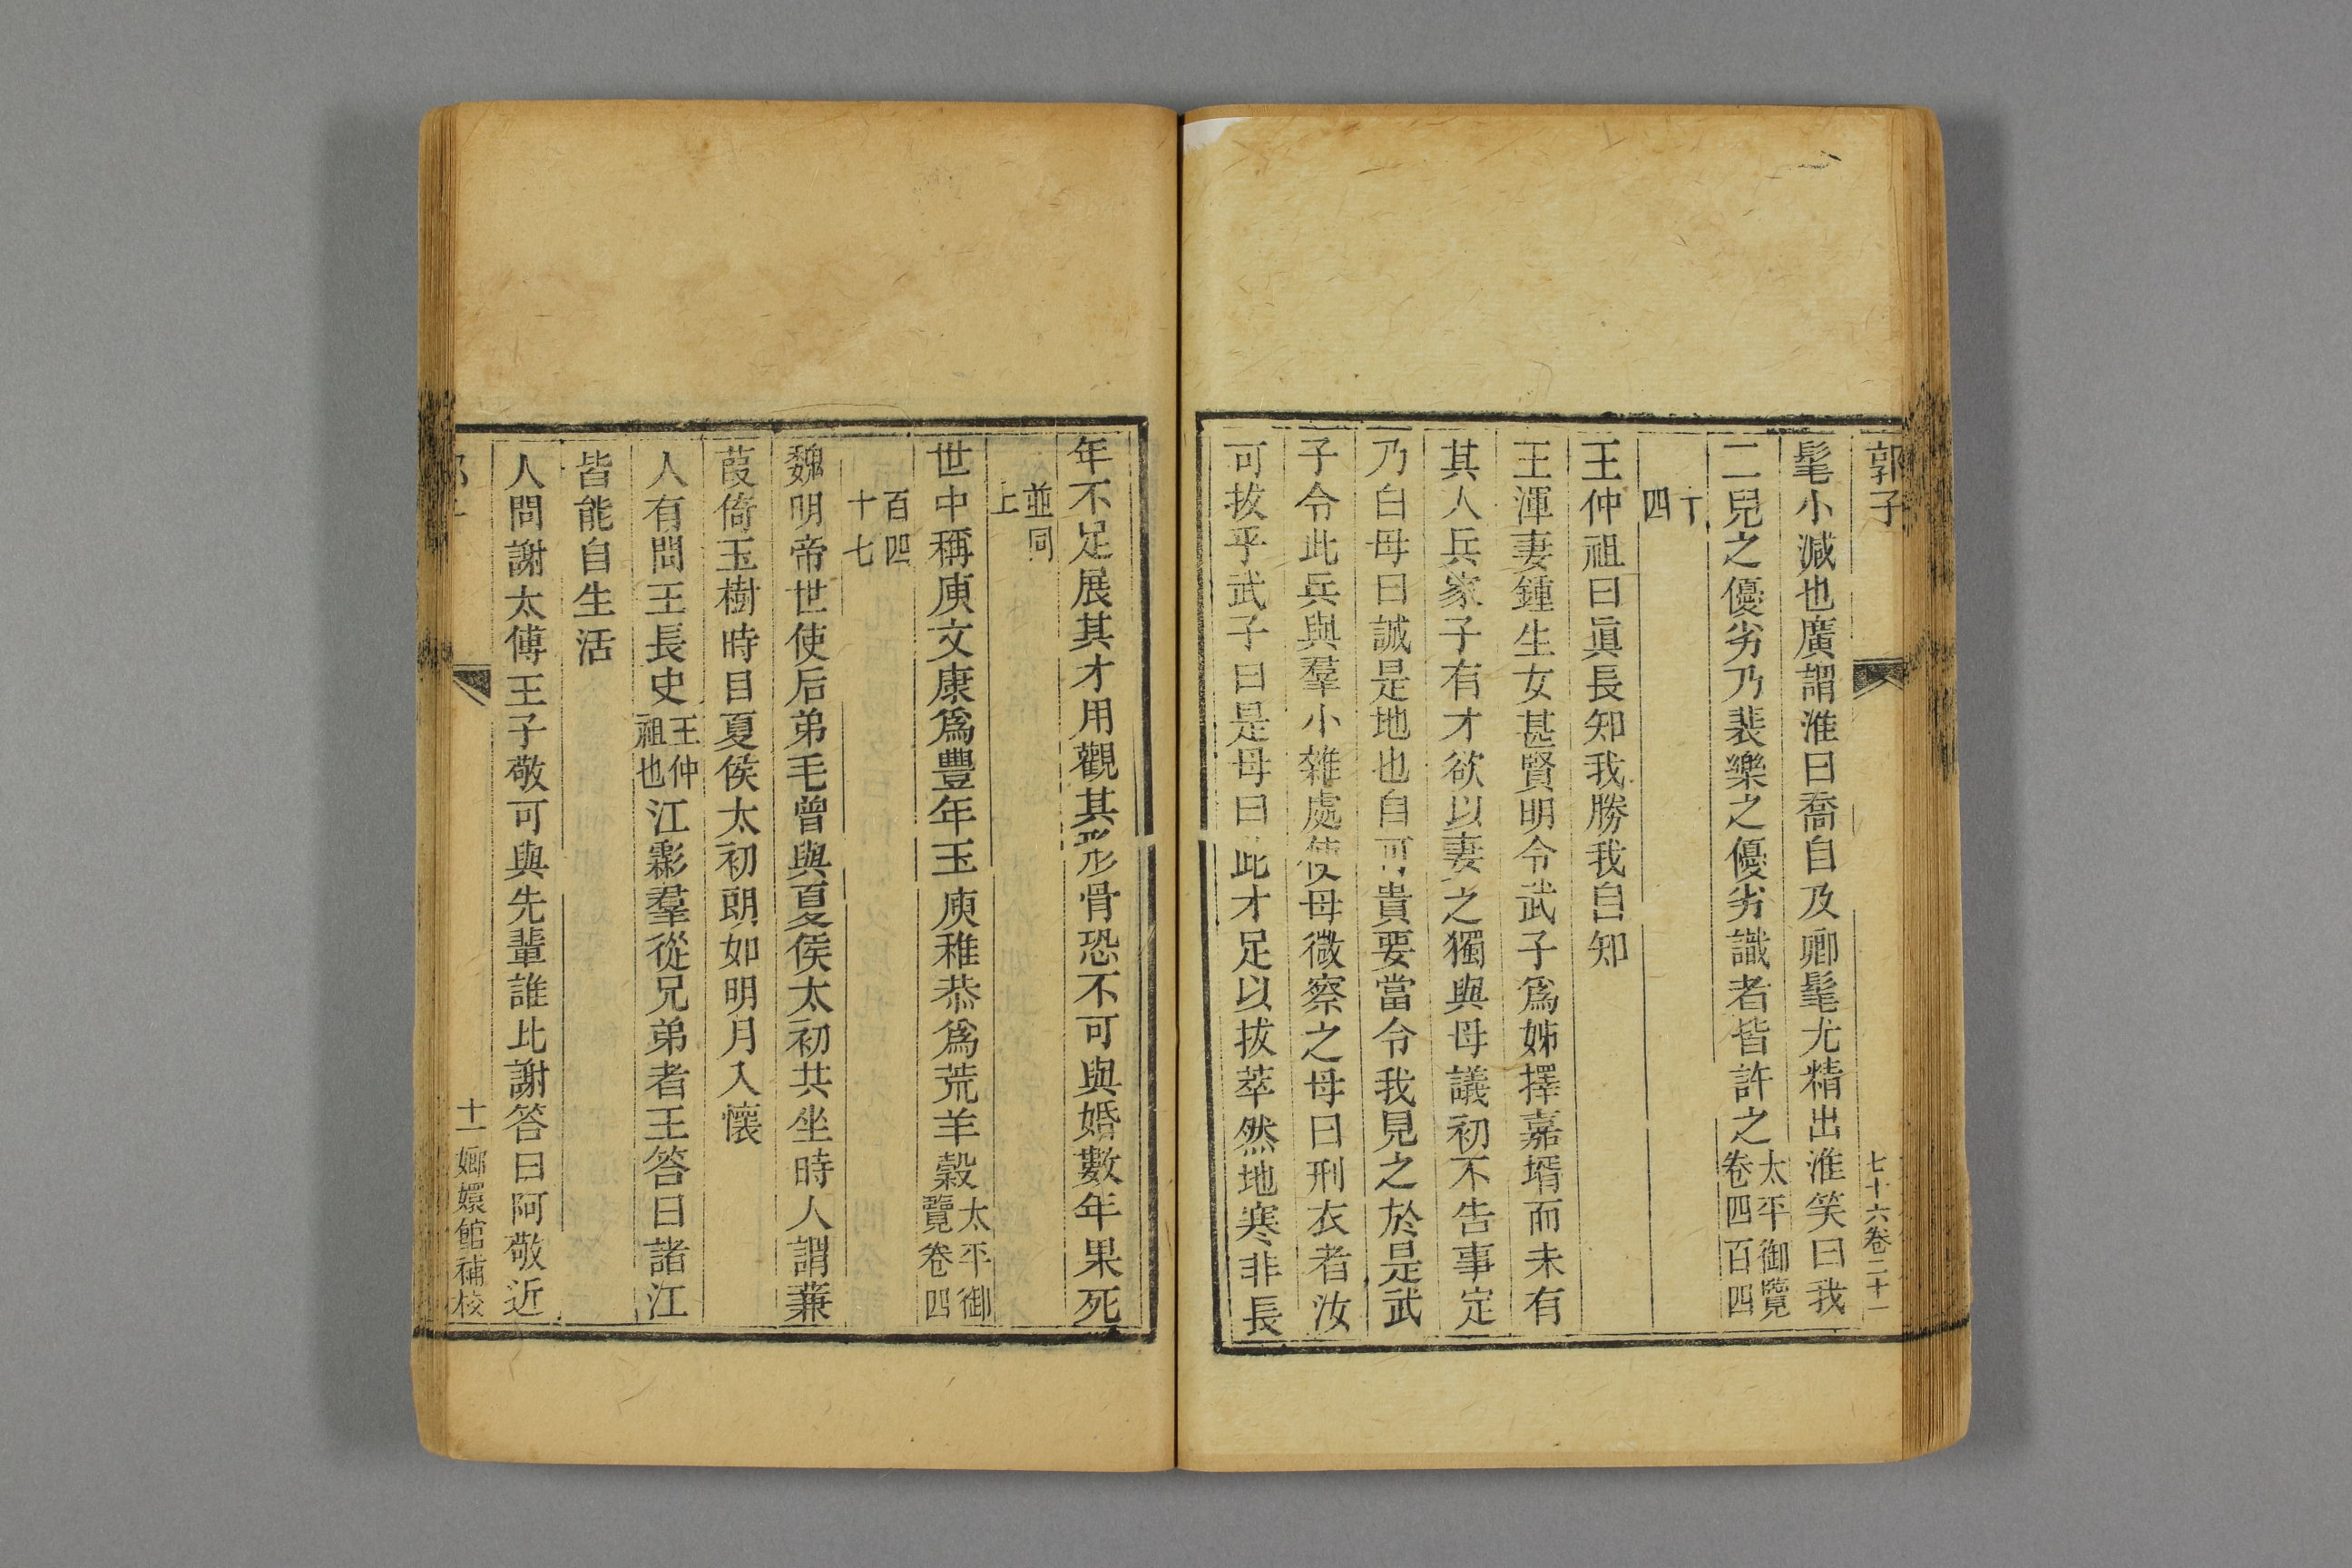 郭子
七十六卷二十一
髦小減也廣謂淮曰喬自及卿髦尤精出淮笑曰我
二兒之優劣乃裴樂之優劣識者皆許之太平御覽卷四百四
四
王仲祖曰眞長知我勝我自知
王渾妻鍾生女甚賢明令武子爲姊擇嘉壻而未有
其人兵家子有才欲以妻之獨與母議初不告事定
乃白母曰誠是地也自可貴要當令我見之於是武
子令此兵與羣小雜處使母微察之母曰刑衣者汝
可拔乎武子曰是母曰此才足以拔萃然地寒非長
年不足展其才用觀其形骨恐不可與婚數年果死
並同上
世中稱庾文康爲豐年玉庾稚恭爲荒羊穀太平御覽卷四
百四十七
魏明帝世使后弟毛曾與夏侯太初共坐時人謂蒹
葭倚玉樹時目夏侯太初朗如明月入懷
人有問王長史王仲祖也江霦羣從兄弟者王答曰諸江
皆能自生活
人問謝太傅王子敬可與先輩誰比謝答曰阿敬近
十一
嫏嬛館補校